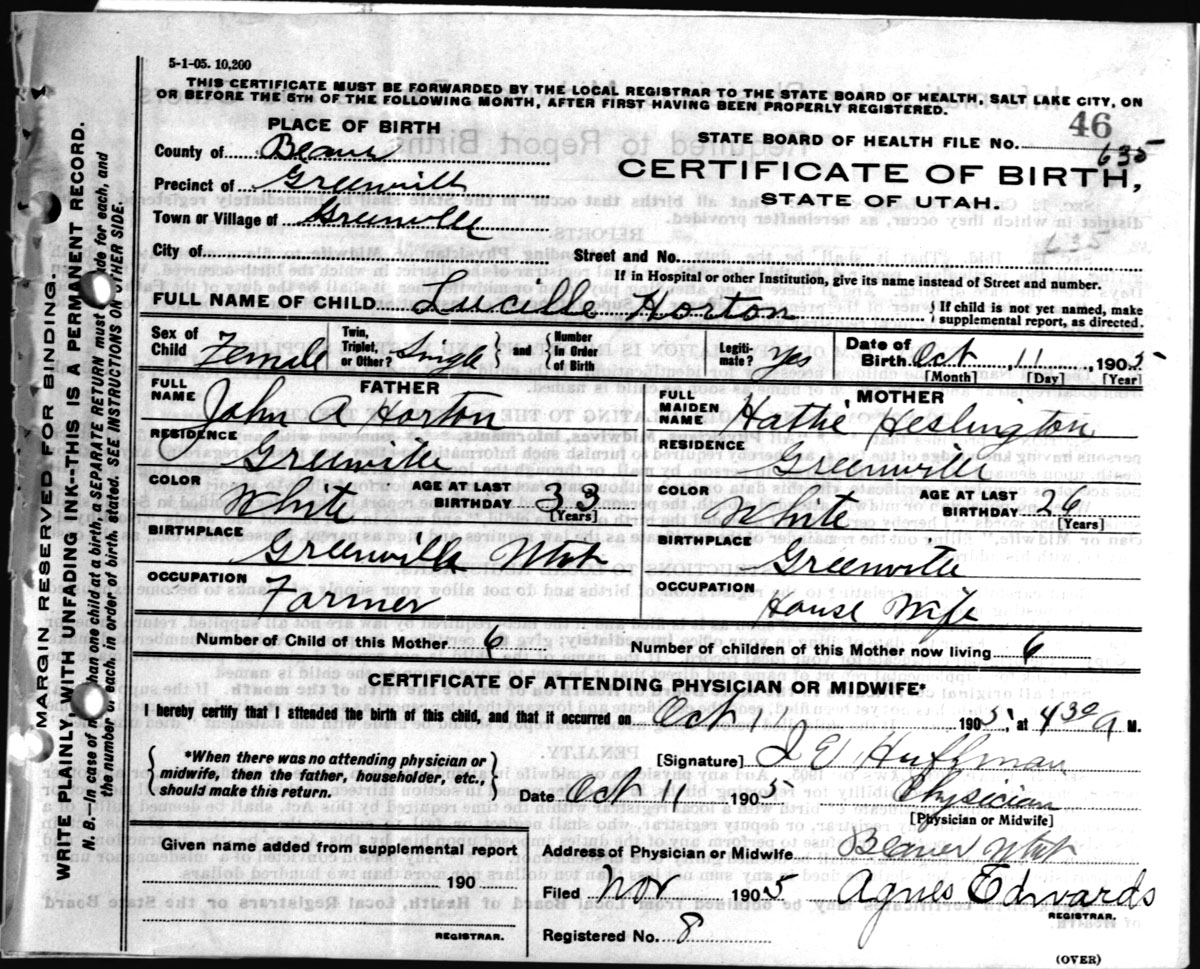 5-1-05. 10,200
THIS CERTIFICATE MUST BE FORWARDED BY THE LOCAL REGISTRAR TO THE STATE BOARD OF HEALTH, SALT LAKE CITY, ON
OR BEFORE THE 5TH OF THE FOLLOWING MONTH, AFTER FIRST HAVING BEEN PROPERLY REGISTERED.
PLACE OF BIRTH
County of Beaver
Precinct of Greenville
Town or Village of Greenville
City of
STATE BOARD OF HEALTH FILE NO. 46
635
CERTIFICATE OF BIRTH,
STATE OF UTAH.
635
Street and No.
If in Hospital or other Institution, give its name instead of Street and number.
FULL NAME OF CHILD Lucille Horton { If child is not yet named, make
supplemental report, as directed.
Sex of Child Female Twin, Triplet, or Other? Single } and { Number In Order of Birth Legiti-mate? Yes Date of Birth Oct 11 1905
[Month] [Day] [Year]
FATHER
FULL NAME John A Horton
RESIDENCE Greenville
COLOR White AGE AT LAST BIRTHDAY 33 [Years]
BIRTHPLACE Greenville Utah
OCCUPATION Farmer
MOTHER
FULL MAIDEN NAME Hattie Heslington
RESIDENCE Greenville
COLOR White AGE AT LAST BIRTHDAY 26 [Years]
BIRTHPLACE Greenville
OCCUPATION House Wife
Number of Child of this Mother 6 Number of children of this Mother now living 6
CERTIFICATE OF ATTENDING PHYSICIAN OR MIDWIFE*
I hereby certify that I attended the birth of this child, and that it occurred on Oct 11 1905, at 430 A M.
{ *When there was no attending physician or
midwife, then the father, householder, etc.,
should make this return. }
[Signature] Huffman
Date Oct 11 1905 Physician
[Physician or Midwife]
Given name added from supplemental report
190
REGISTRAR.
Address of Physician or Midwife Beaver Utah
Filed Nov 1905 Agnes Edwards
REGISTRAR.
Registered No. 8
(OVER)
MARGIN RESERVED FOR BINDING.
WRITE PLAINLY WITH UNFADING INK--THIS IS A PERMANENT RECORD.
N. B.--In case of than one child at a birth, a SEPARATE RETURN must for each, and
the number of each, in order of birth, stated. SEE INSTRUCTIONS ON OTHER SIDE.